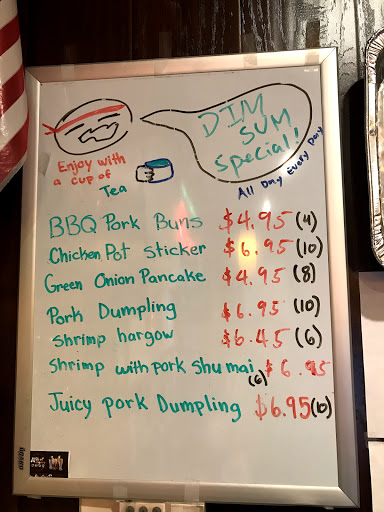 DIM
SUM
Special!
All Day Every Day
Enjoy with
a cup of
Tea
BBQ Pork Buns $4.95 (4)
Chicken Pot sticker $6.95 (10)
Green Onion Pancake $4.95 (8)
Pork Dumpling $6.95 (10)
Shrimp hargow $6.45 (6)
Shrimp with pork Shu mai (6) $6.95
Juicy pork Dumpling $6.95 (6)